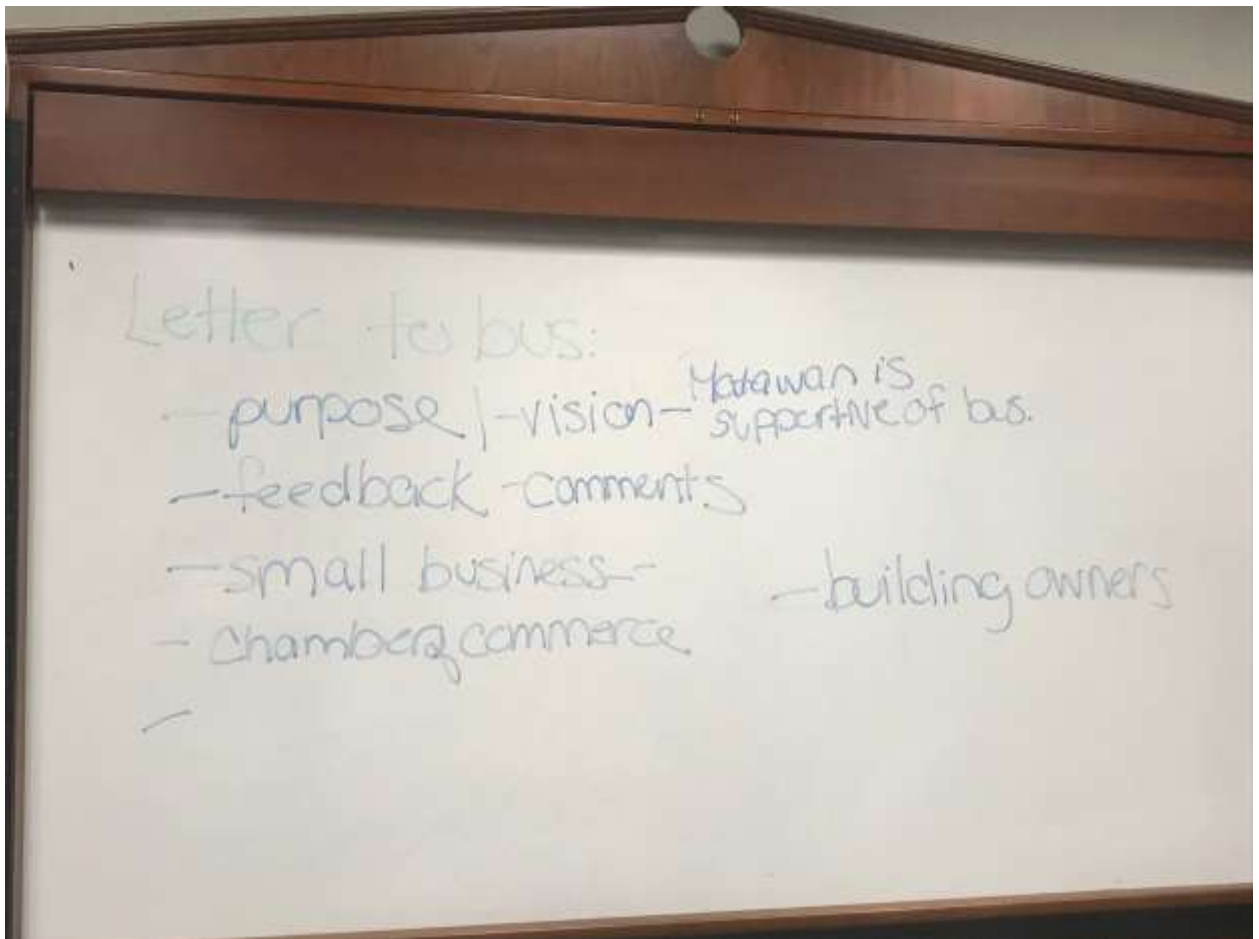 Letter to bus:
- purpose / - vision - Matawan is
supportive of bus.
- feedback - comments
- small business -
- building owners
- chamber of commerce
-